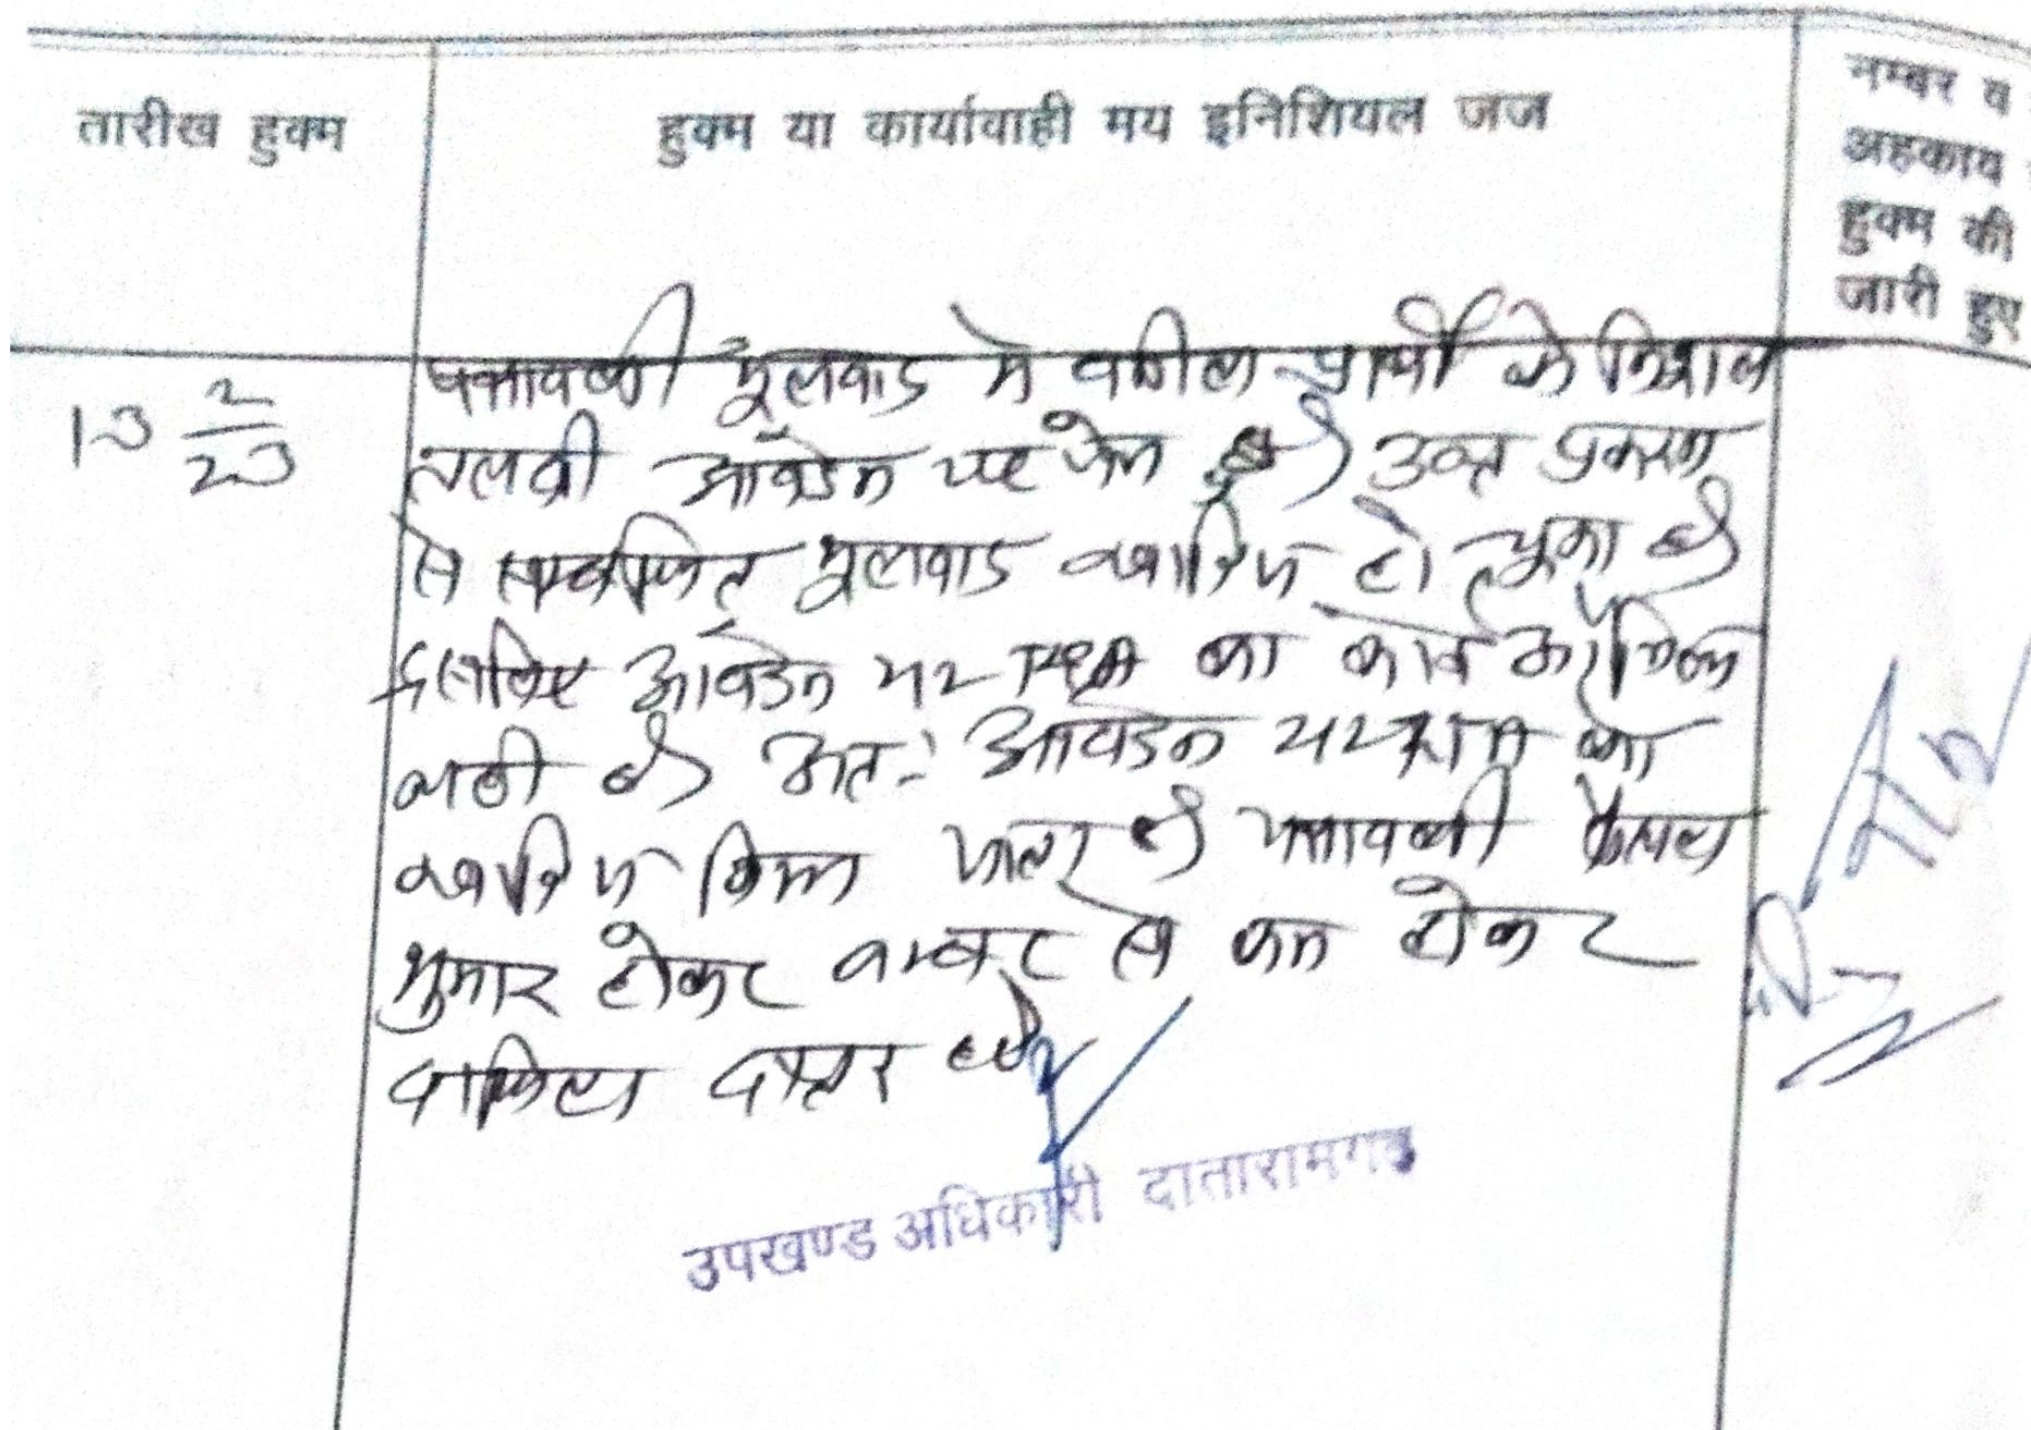 तारीख हुक्म
हुक्म या कार्यावाही मय इनिशियल जज
नम्बर व
अहकाव
हुक्म की
जारी हुए
13 2/23
पत्रावली मूलवाद मे वकील प्रार्थी के
तलबी आवेदन पर पेश हुई उक्त प्रकरण
से सम्बन्धित मूलवाद खारिज हो चुका है
इसलिए आवेदन पत्र का कोई
नही है अतः आवेदन पत्र को
खारिज किया जाता है पत्रावली फैसल
शुमार होकर नम्बर से कम होकर
दाखिल दफ्तर हो
उपखण्ड अधिकारी दातारामगढ